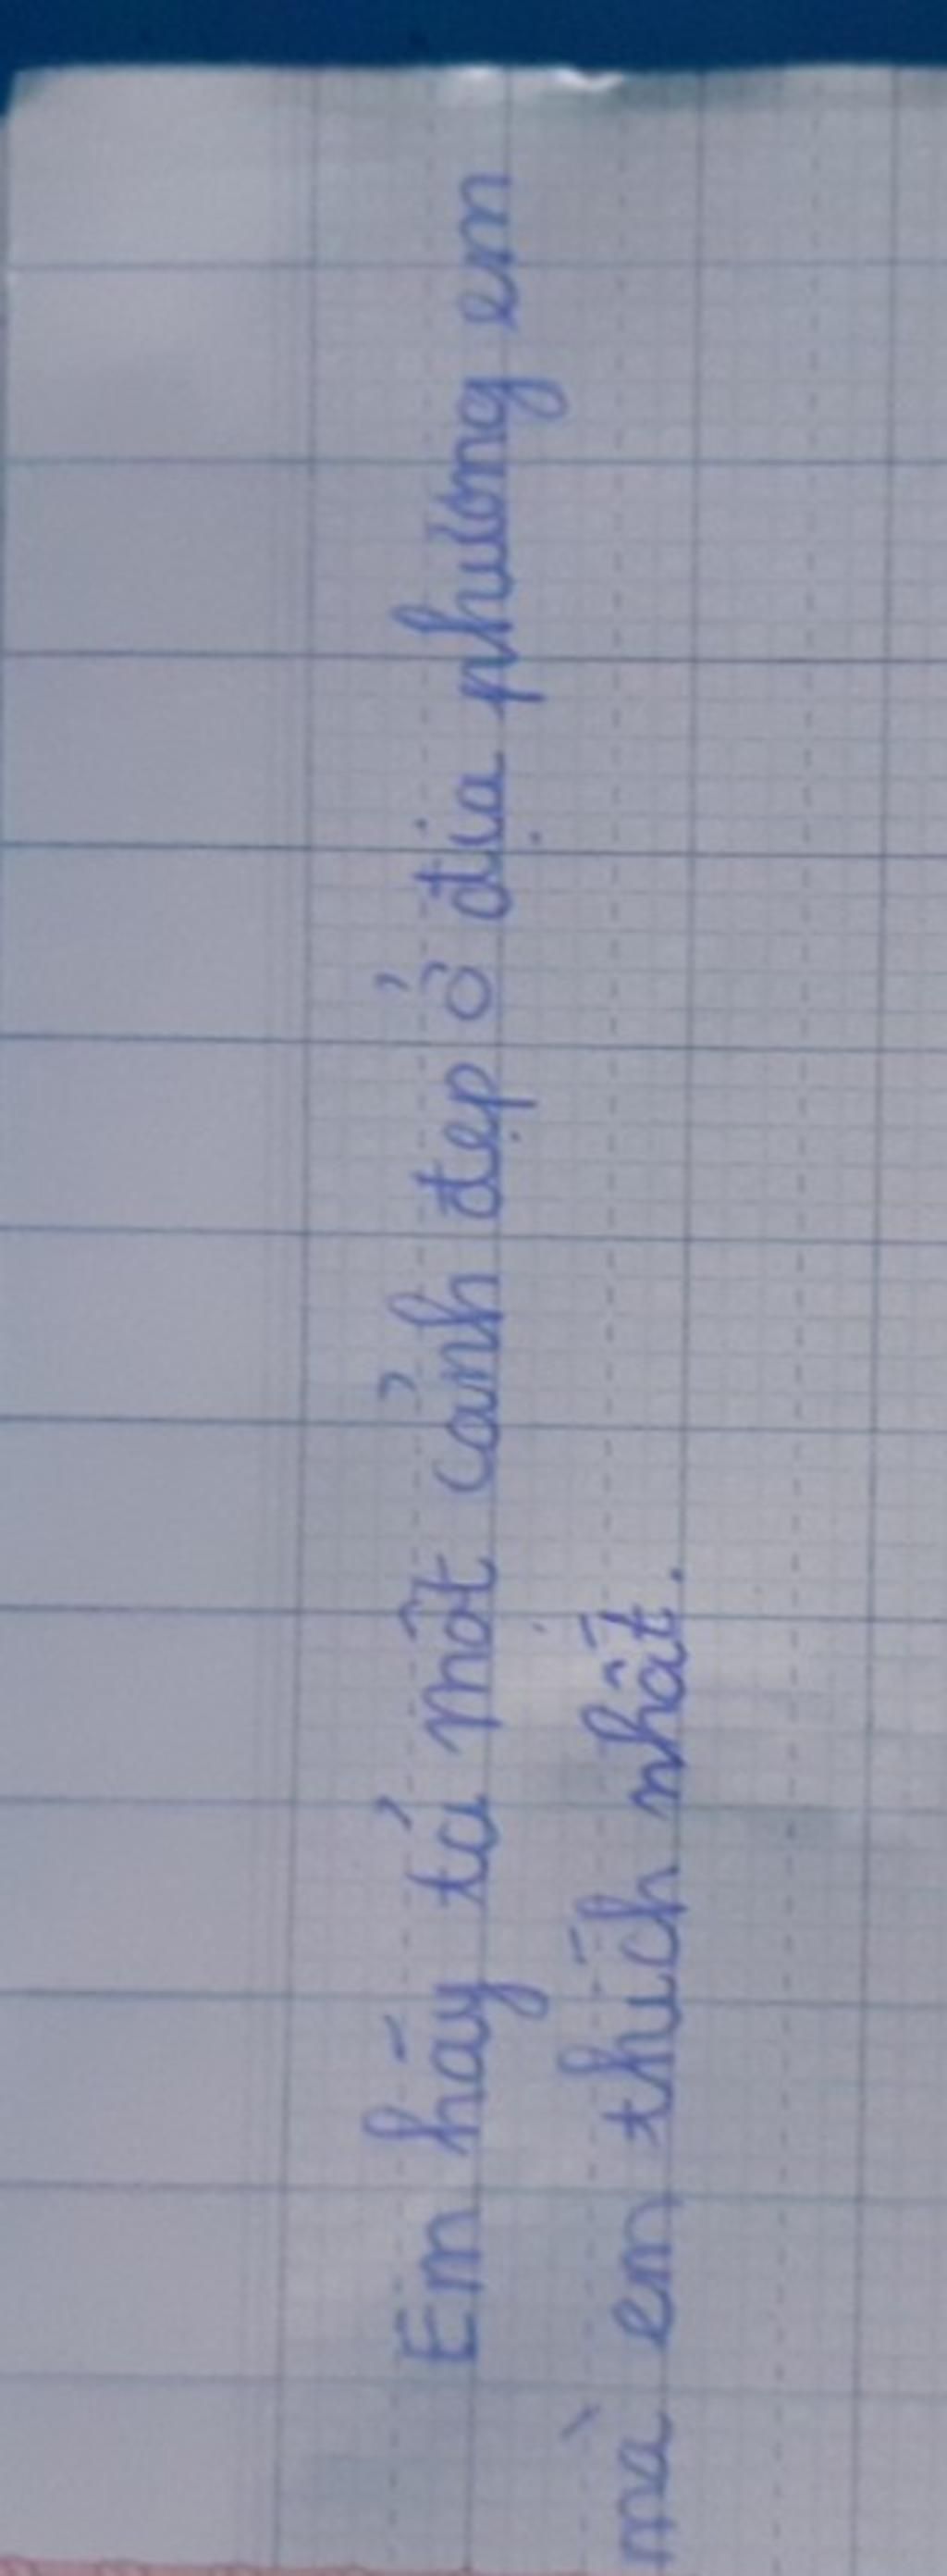 Em hãy tả một cảnh đẹp ở địa phương em
mà em thích nhất.